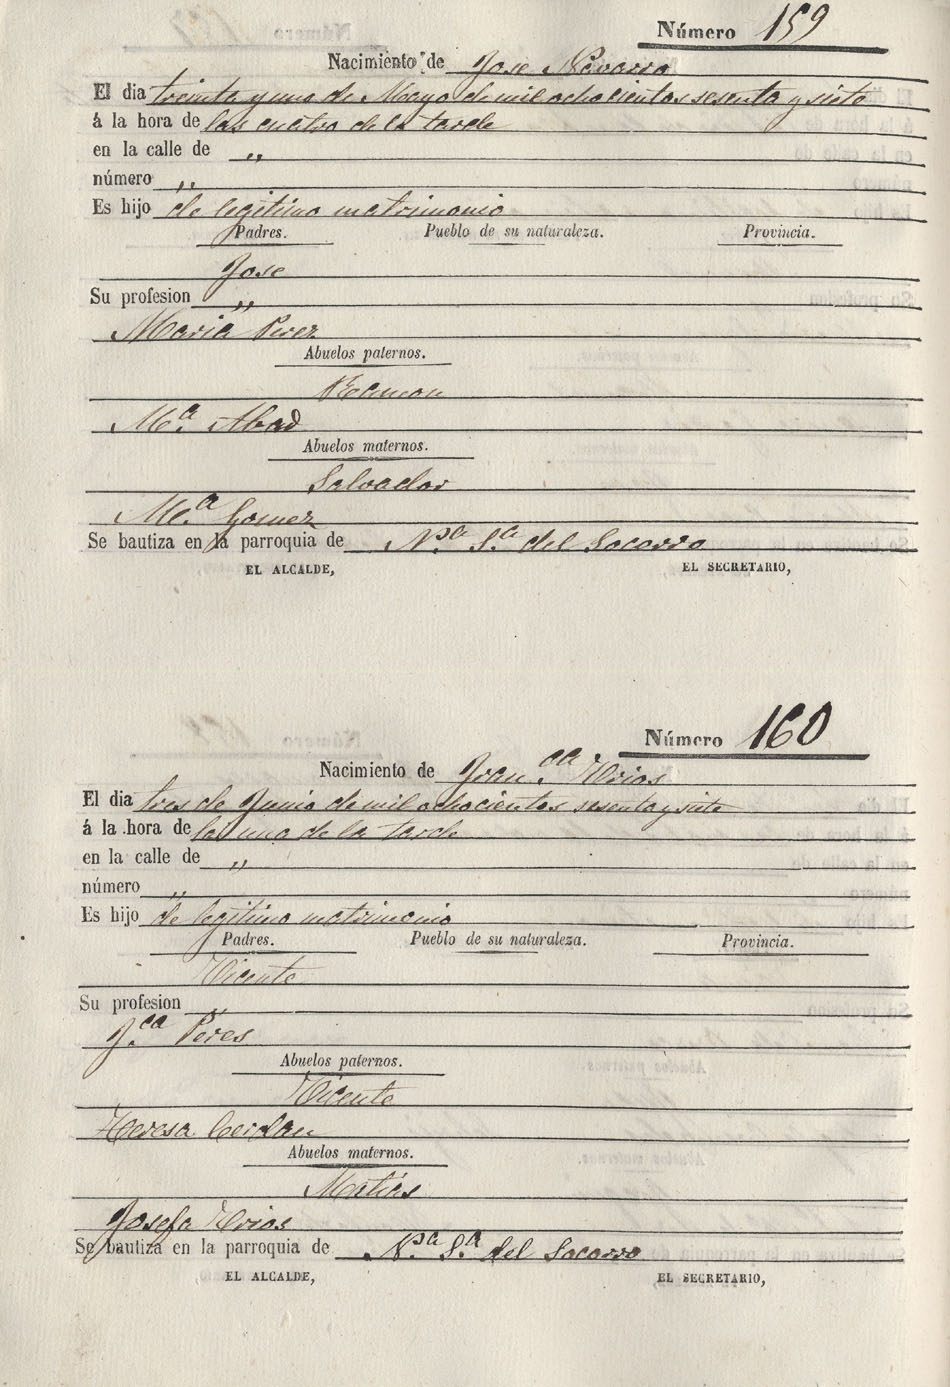 Número 159
Nacimiento de Jose Navarro
El dia treinta y uno de Mayo de mil ochocientos sesenta y siete
á la hora de las cuatro de la tarde
en la calle de „
número „
Es hijo de legitimo matrimonio
Padres. Pueblo de su naturaleza. Provincia.
Jose
Su profesion „
Maria Perez
Abuelos paternos.
Ramon
Mª. Abad
Abuelos maternos.
Salvador
Mª. Gomez
Se bautiza en la parroquia de Nª. Sª. del Socorro
EL ALCALDE, EL SECRETARIO,
Número 160
Nacimiento de Franᶜᵃ. Urios
El dia tres de Junio de mil ochocientos sesenta y siete
á la hora de las una de la tarde
en la calle de „
número „
Es hijo de legitimo matrimonio
Padres. Pueblo de su naturaleza. Provincia.
Vicente
Su profesion „
Fᶜᵃ. Peres
Abuelos paternos.
Vicente
Teresa Cerdan
Abuelos maternos.
Matias
Josefa Urios
Se bautiza en la parroquia de Nª. Sª. del Socorro
EL ALCALDE, EL SECRETARIO,